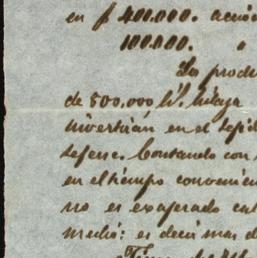 en $ 400.000. accio
100.000. "
Los produ
de 500.000 lbs. hilaza
invertirán en el tejid
defensa. Contando con
en el tiempo convenien
no es exagerado cal
media: es decir mas d